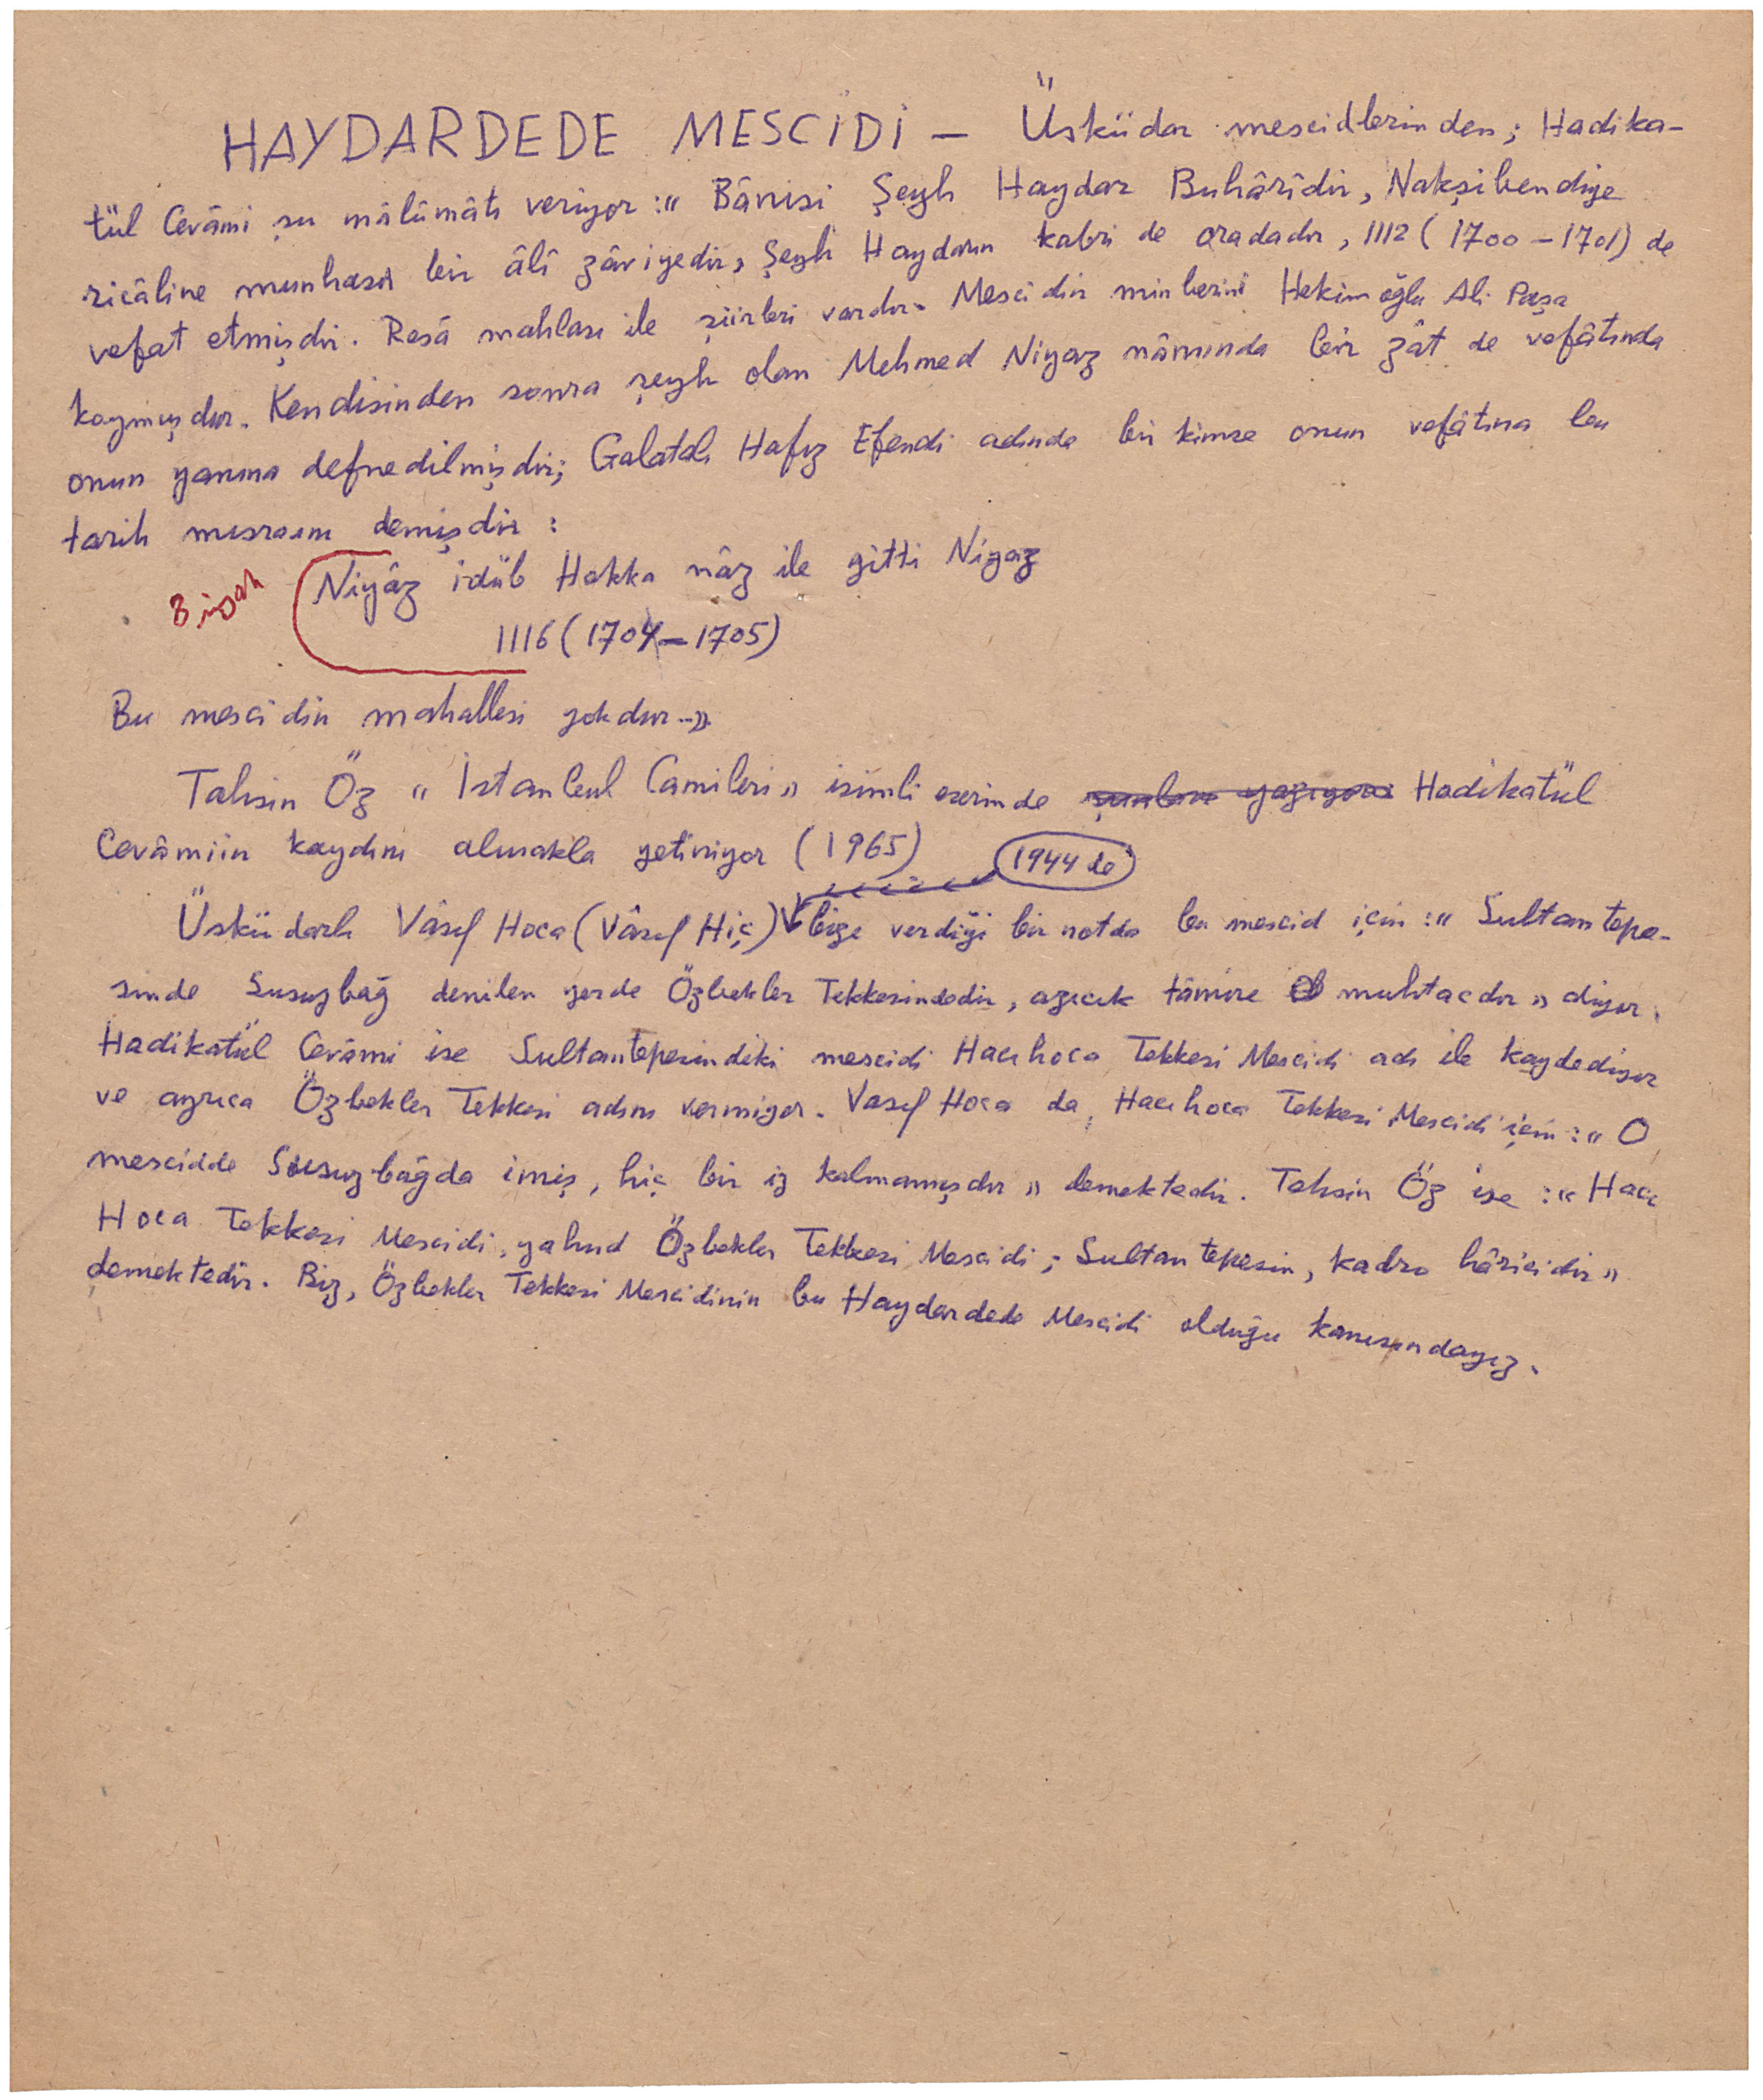 HAYDARDEDE MESCİDİ — Üsküdar mescidlerinden; Hadika-
tül Cevâmi şu mâlûmâtı veriyor: « Bânisi Şeyh Haydar Buhârîdir, Nakşibendiye
ricâline munhasır bir âlî zâviyedir, Şeyh Haydarın kabri de oradadır, 1112 (1700 — 1701) de
vefat etmişdir. Resâ mahlası ile şiirleri vardır. Mescidin minberini Hekimoğlu Ali Paşa
koymuşdur. Kendisinden sonra şeyh olan Mehmed Niyaz nâmında bir zât de vefâtında
onun yanına defnedilmişdir; Galatalı Hafız Efendi adında bir kimse onun vefâtına bu
tarih mısraını demişdir:
8 siyah
Niyâz idüb Hakka nâz ile gitti Niyaz
1116 (1704 — 1705)
Bu mescidin mahallesi yokdur..»
Tahsin Öz « İstanbul Camileri » isimli eserinde şunları yazıyor: Hadikatül
Cevâmiin kaydını almakla yetiniyor (1965)
1944 de
Üsküdarlı Vâsıf Hoca (Vâsıf Hiç) bize verdiği bir notda bu mescid için: « Sultantepe-
sinde Susuzbağ denilen yerde Özbekler Tekkesindedir, azıcık tâmire muhtacdır » diyor.
Hadikatül Cevâmi ise Sultantepesindeki mescidi Hacıhoca Tekkesi Mescidi adı ile kaydediyor
ve ayrıca Özbekler Tekkesi adını vermiyor. Vasıf Hoca da, Hacıhoca Tekkesi Mescidi için: « O
mescidde Susuzbağda imiş, hiç bir iz kalmamışdır » demektedir. Tahsin Öz ise: « Hacı
Hoca Tekkesi Mescidi, yahud Özbekler Tekkesi Mescidi; Sultantepesin, kadro hâricidir »
demektedir. Biz, Özbekler Tekkesi Mescidinin bu Haydardede Mescidi olduğu kanısındayız.